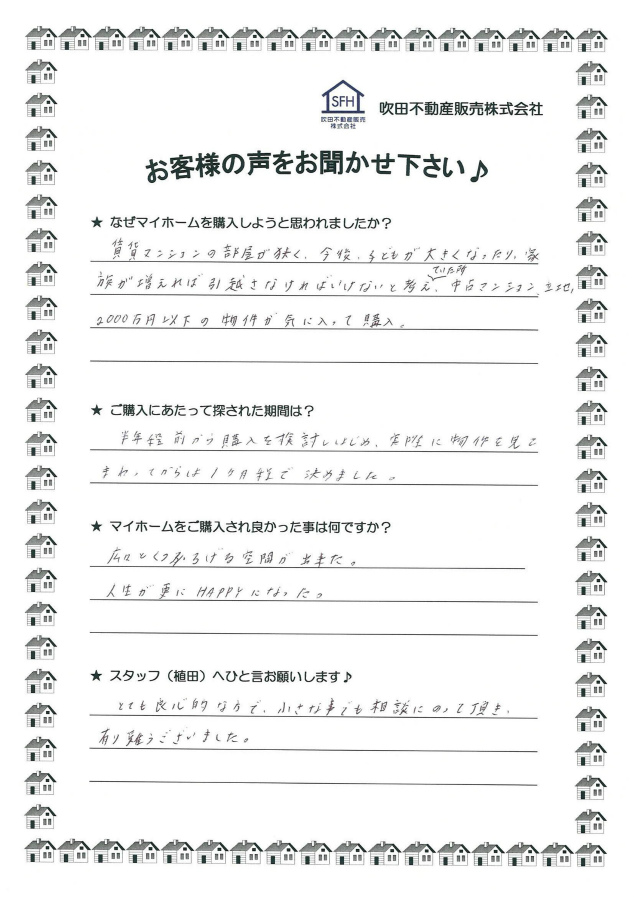 SFH
吹田不動産販売
株式会社
吹田不動産販売株式会社
お客様の声をお聞かせ下さい♪
★ なぜマイホームを購入しようと思われましたか？
賃貸マンションの部屋が狭く、今後、子どもが大きくなったり、家
族が増えれば引越さなければいけないと考え、中古マンション、立地、
ていた所
2000万円以下の物件が気に入って購入。
★ ご購入にあたって探された期間は？
半年程前から購入を検討しはじめ、実際に物件を見て
まわってからは1ヶ月程で決めました。
★ マイホームをご購入され良かった事は何ですか？
広々とくつろげる空間が出来た。
人生が更にHAPPYになった。
★ スタッフ（植田）へひと言お願いします♪
とても良心的な方で、小さな事でも相談にのって頂き、
有り難うございました。